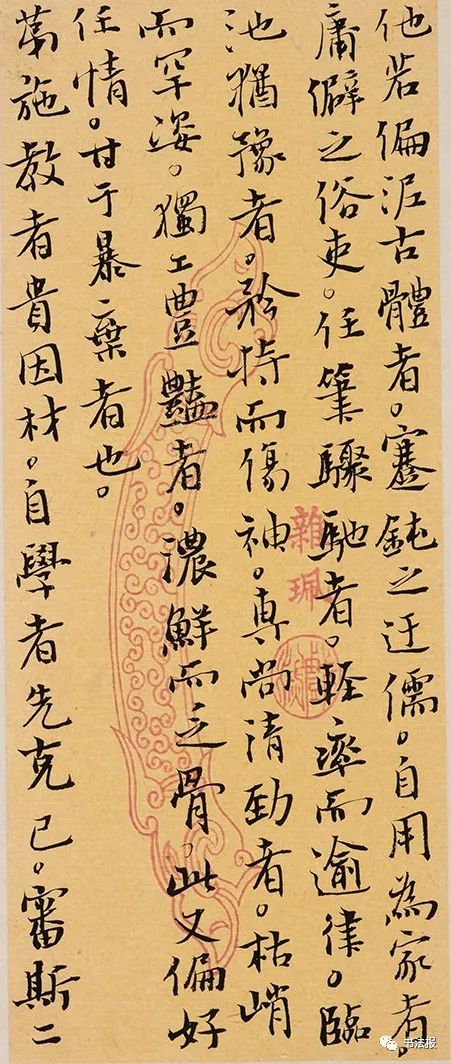 他若偏泥古體者。蹇鈍之迂儒。自用為家者。
庸僻之俗吏。任筆驟馳者。輕率而逾律。臨
池猶豫者。矜持而傷神。專尚清勁者。枯峭
而罕姿。獨工豊豔者。濃鮮而乏骨。此又偏好
任情。甘于暴棄者也。
苐施教者貴因材。自學者先克己。審斯二
雜珮
书法报